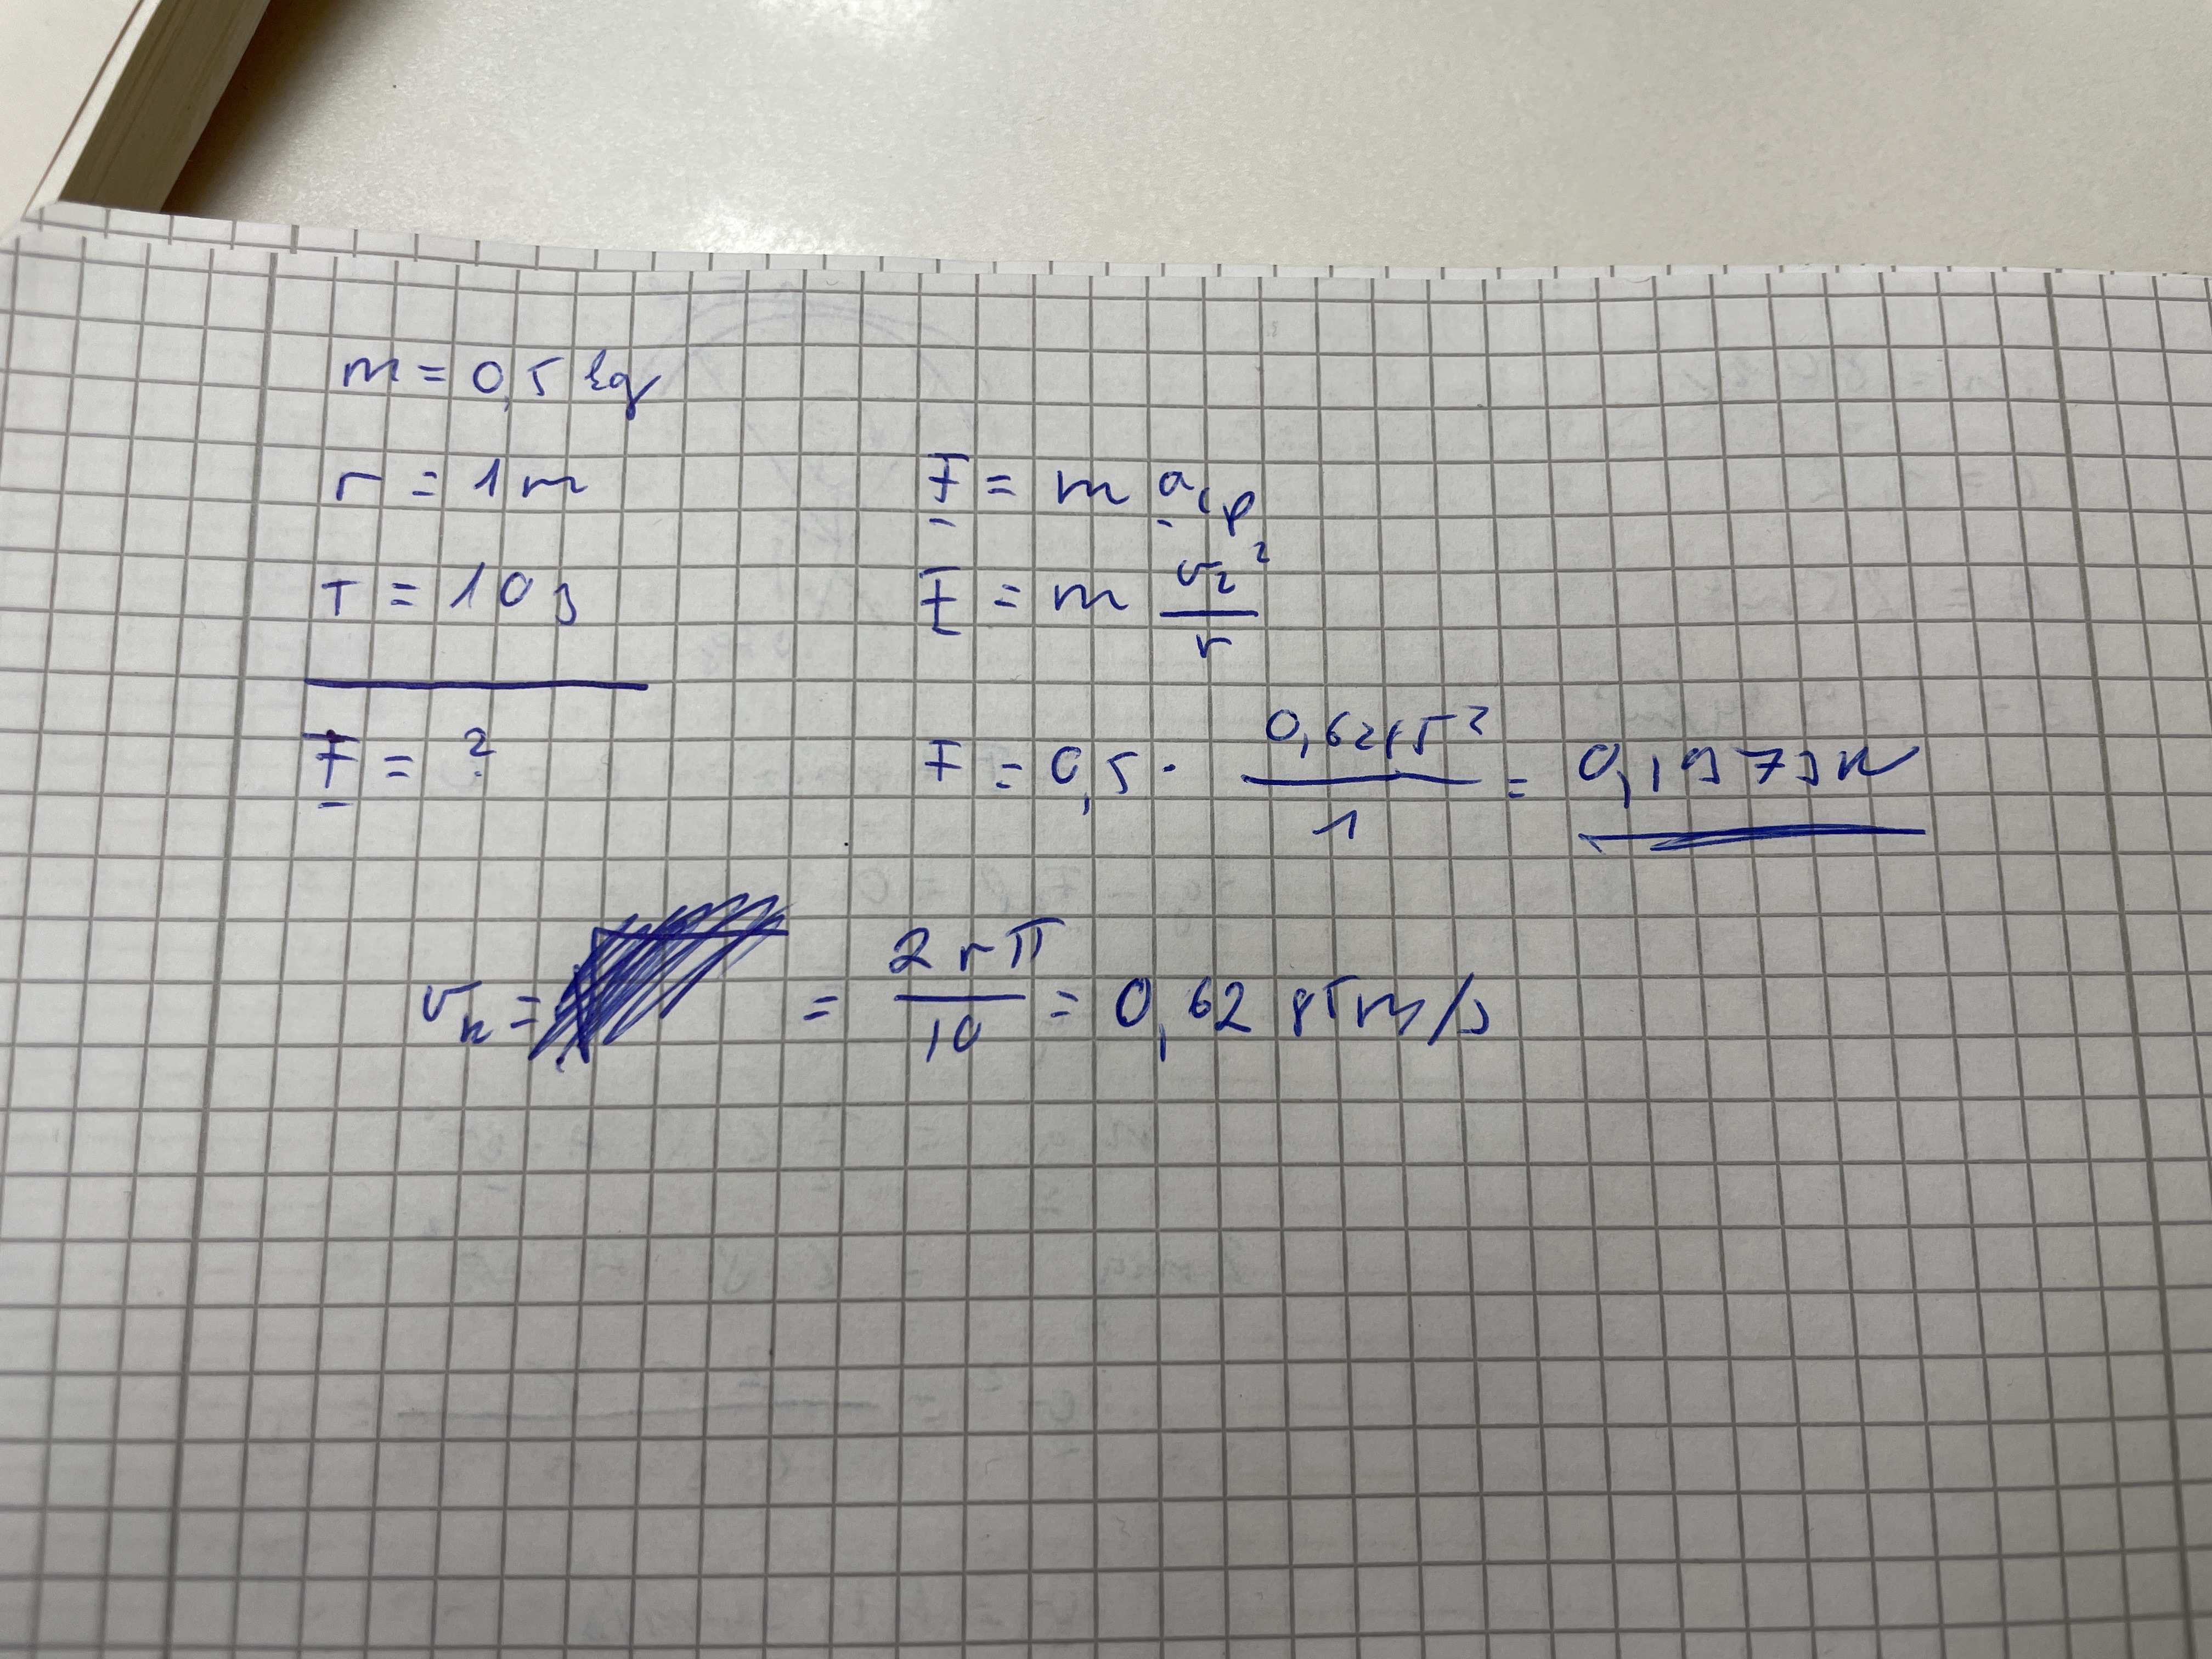 m = 0,5 kg
r = 1 m
T = 10 s
F = ?
F = m a cp
F = m v² / r
F = 0,5 · 0,6285² / 1 = 0,1973 N
= 2 r π / 10 = 0,6285 m/s